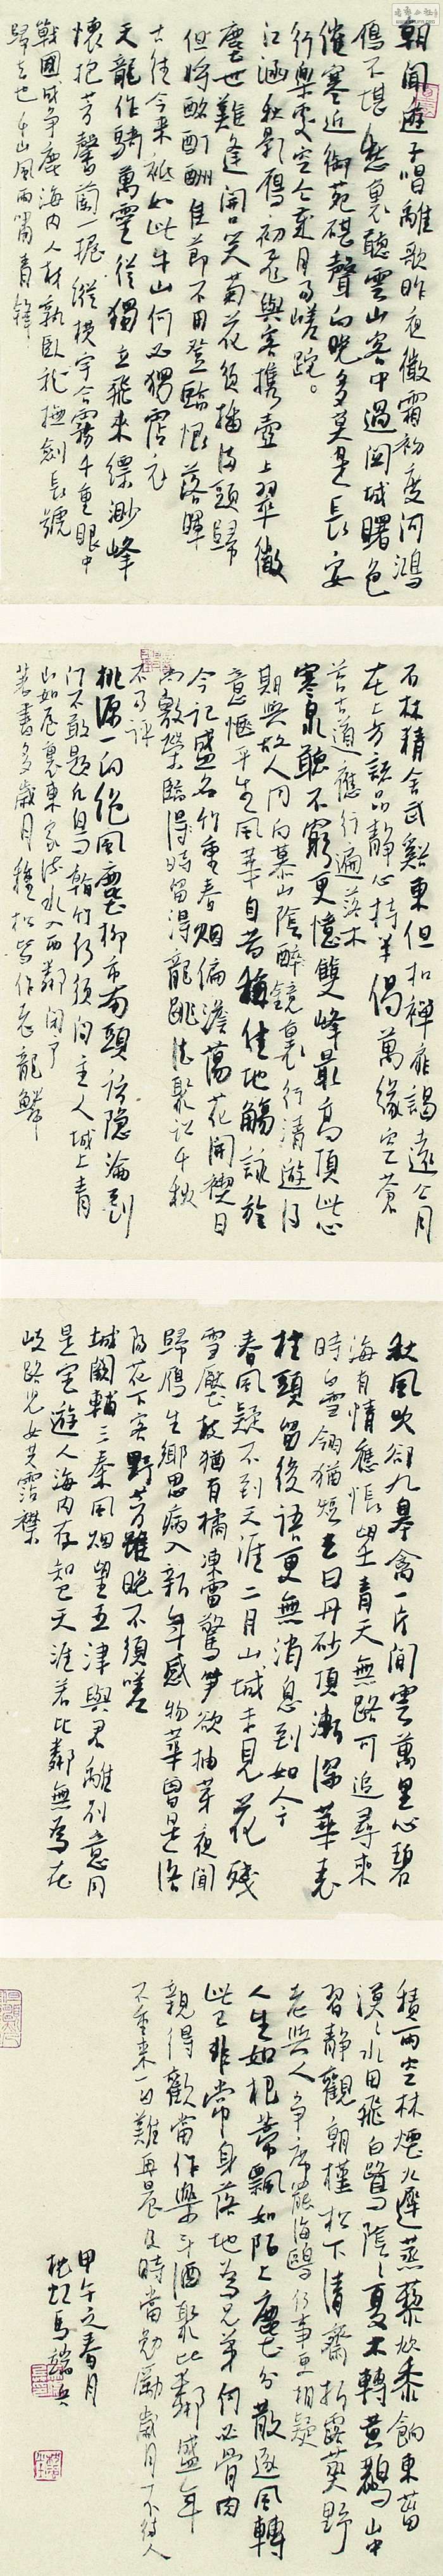 朝聞遊子唱離歌昨夜微霜初度河鴻
雁不堪愁裏聽雲山客中過關城曙色
催寒近御苑砧聲向晚多莫是長安
行樂處空令歲月易蹉跎。
江涵秋影雁初飛與客携壺上翠微
塵世難逢開口笑菊花須插滿頭歸
但將酩酊酬佳節不用登臨恨落暉
古往今來祇如此牛山何必獨霑衣
天龍作騎萬靈從獨立飛來縹渺峰
懷抱芳馨蘭一握縱橫宇合霧千重眼中
戰國成爭鹿海内人材孰臥龍撫劍長號
歸去也千山風雨嘯青鋒
石林精舍武谿東但扣禪扉謁遠公月
在上方諸品静心持半偈萬緣空蒼
苔古道應行遍落木
寒泉聽不窮更憶雙峰最高頂此心
期與故人同向慕山陰醉鏡裏行清遊得
意愜平生風華自昔稱佳地觴詠於
今記盛名竹重春烟偏澹蕩花開禊日
尚敷榮臨得時留得龍跳法聚訟千秋
不易評
桃源一向絶風塵柳市南頭訪隱淪到
門不敢題凡鳥看竹何須問主人城上青
山如屋裏東家流水入西鄰閉户
著書多歲月種松皆作老龍鱗
秋風吹卻九皋禽一片閒雲萬里心碧
海有情應悵望青天無路可追尋來
時白雪翎猶短去日丹砂頂漸深華表
柱頭留後語更無消息到如人々
春風疑不到天涯二月山城未見花殘
雪壓枝猶有橘凍雷驚笋欲抽芽夜聞
歸雁生鄉思病入新年感物華曾是洛
陽花下客野芳雖晚不須嗟
城闕輔三秦風烟望五津與君離別意同
是宦遊人海内存知己天涯若比鄰無爲在
歧路兒女共霑襟
積雨空林煙火遲蒸藜炊黍餉東菑
漠々水田飛白鷺陰々夏木轉黄鸝山中
習静觀朝槿松下清齋折露葵野
老與人争席罷海鷗何事更相疑
人生如根蒂飄如陌上塵分散逐風轉
此已非常身落地爲兄弟何必骨肉
親得歡當作樂斗酒聚比鄰盛年
不重來一日難再晨及時當勉勵歲月不待人
甲午之春月
馬端兵